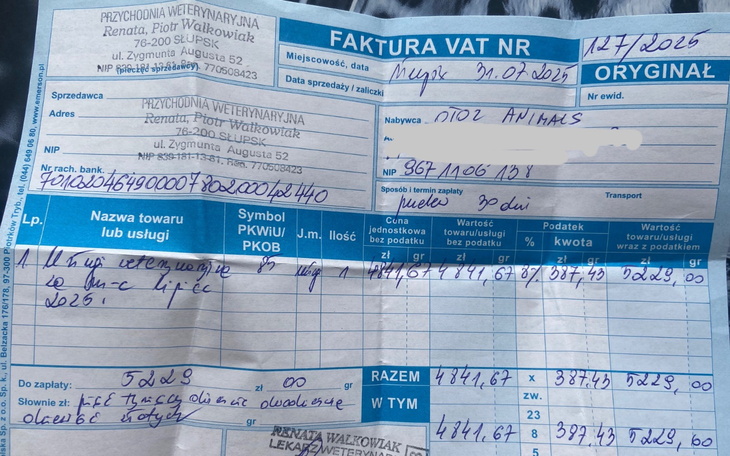 PRZYCHODNIA WETERYNARYJNA
Renata, Piotr Walkowiak
76-200 SŁUPSK
ul. Zygmunta Augusta 52
NIP 839-181-13-81, Reg. 770508423
(pieczęć sprzedawcy)
FAKTURA VAT NR 127/2025
Miejscowość, data Słupsk 31.07.2025
ORYGINAŁ
Data sprzedaży / zaliczki
Nr ewid.
Sprzedawca
Adres
PRZYCHODNIA WETERYNARYJNA
Renata, Piotr Walkowiak
76-200 SŁUPSK
ul. Zygmunta Augusta 52
NIP 839-181-13-81, Reg. 770508423
NIP
Nr rach. bank.
70102046490000780200042440
Nabywca OTOZ ANIMALS
NIP 9671106138
Sposób i termin zapłaty
30 dni
Transport
Lp.
Nazwa towaru lub usługi
Symbol PKWiU/PKOB
J.m.
Ilość
Cena jednostkowa bez podatku
zł gr
Wartość towaru/usługi bez podatku
zł gr
Podatek
% kwota
zł gr
Wartość towaru/usługi wraz z podatkiem
zł gr
1 Usługi weterynaryjne 85 usł 1 4841,67 4841,67 8% 387,43 5229,00
za m-c lipiec
2025.
Do zapłaty: 5229 zł 00 gr
RAZEM 4841,67 x 387.43 5229,00
Słownie zł: pięć tysięcy dwieście dwadzieścia
dziewięć złotych gr
W TYM
zw.
23
4841,67 8 387,43 5229,00
5
RENATA WALKOWIAK
LEKARZ WETERYNARII
www.emerson.pl
tel. (044) 649 06 80,
ul. Belzacka 176/178, 97-300 Piotrków Tryb.,
Sp. z o.o. Sp. k.,